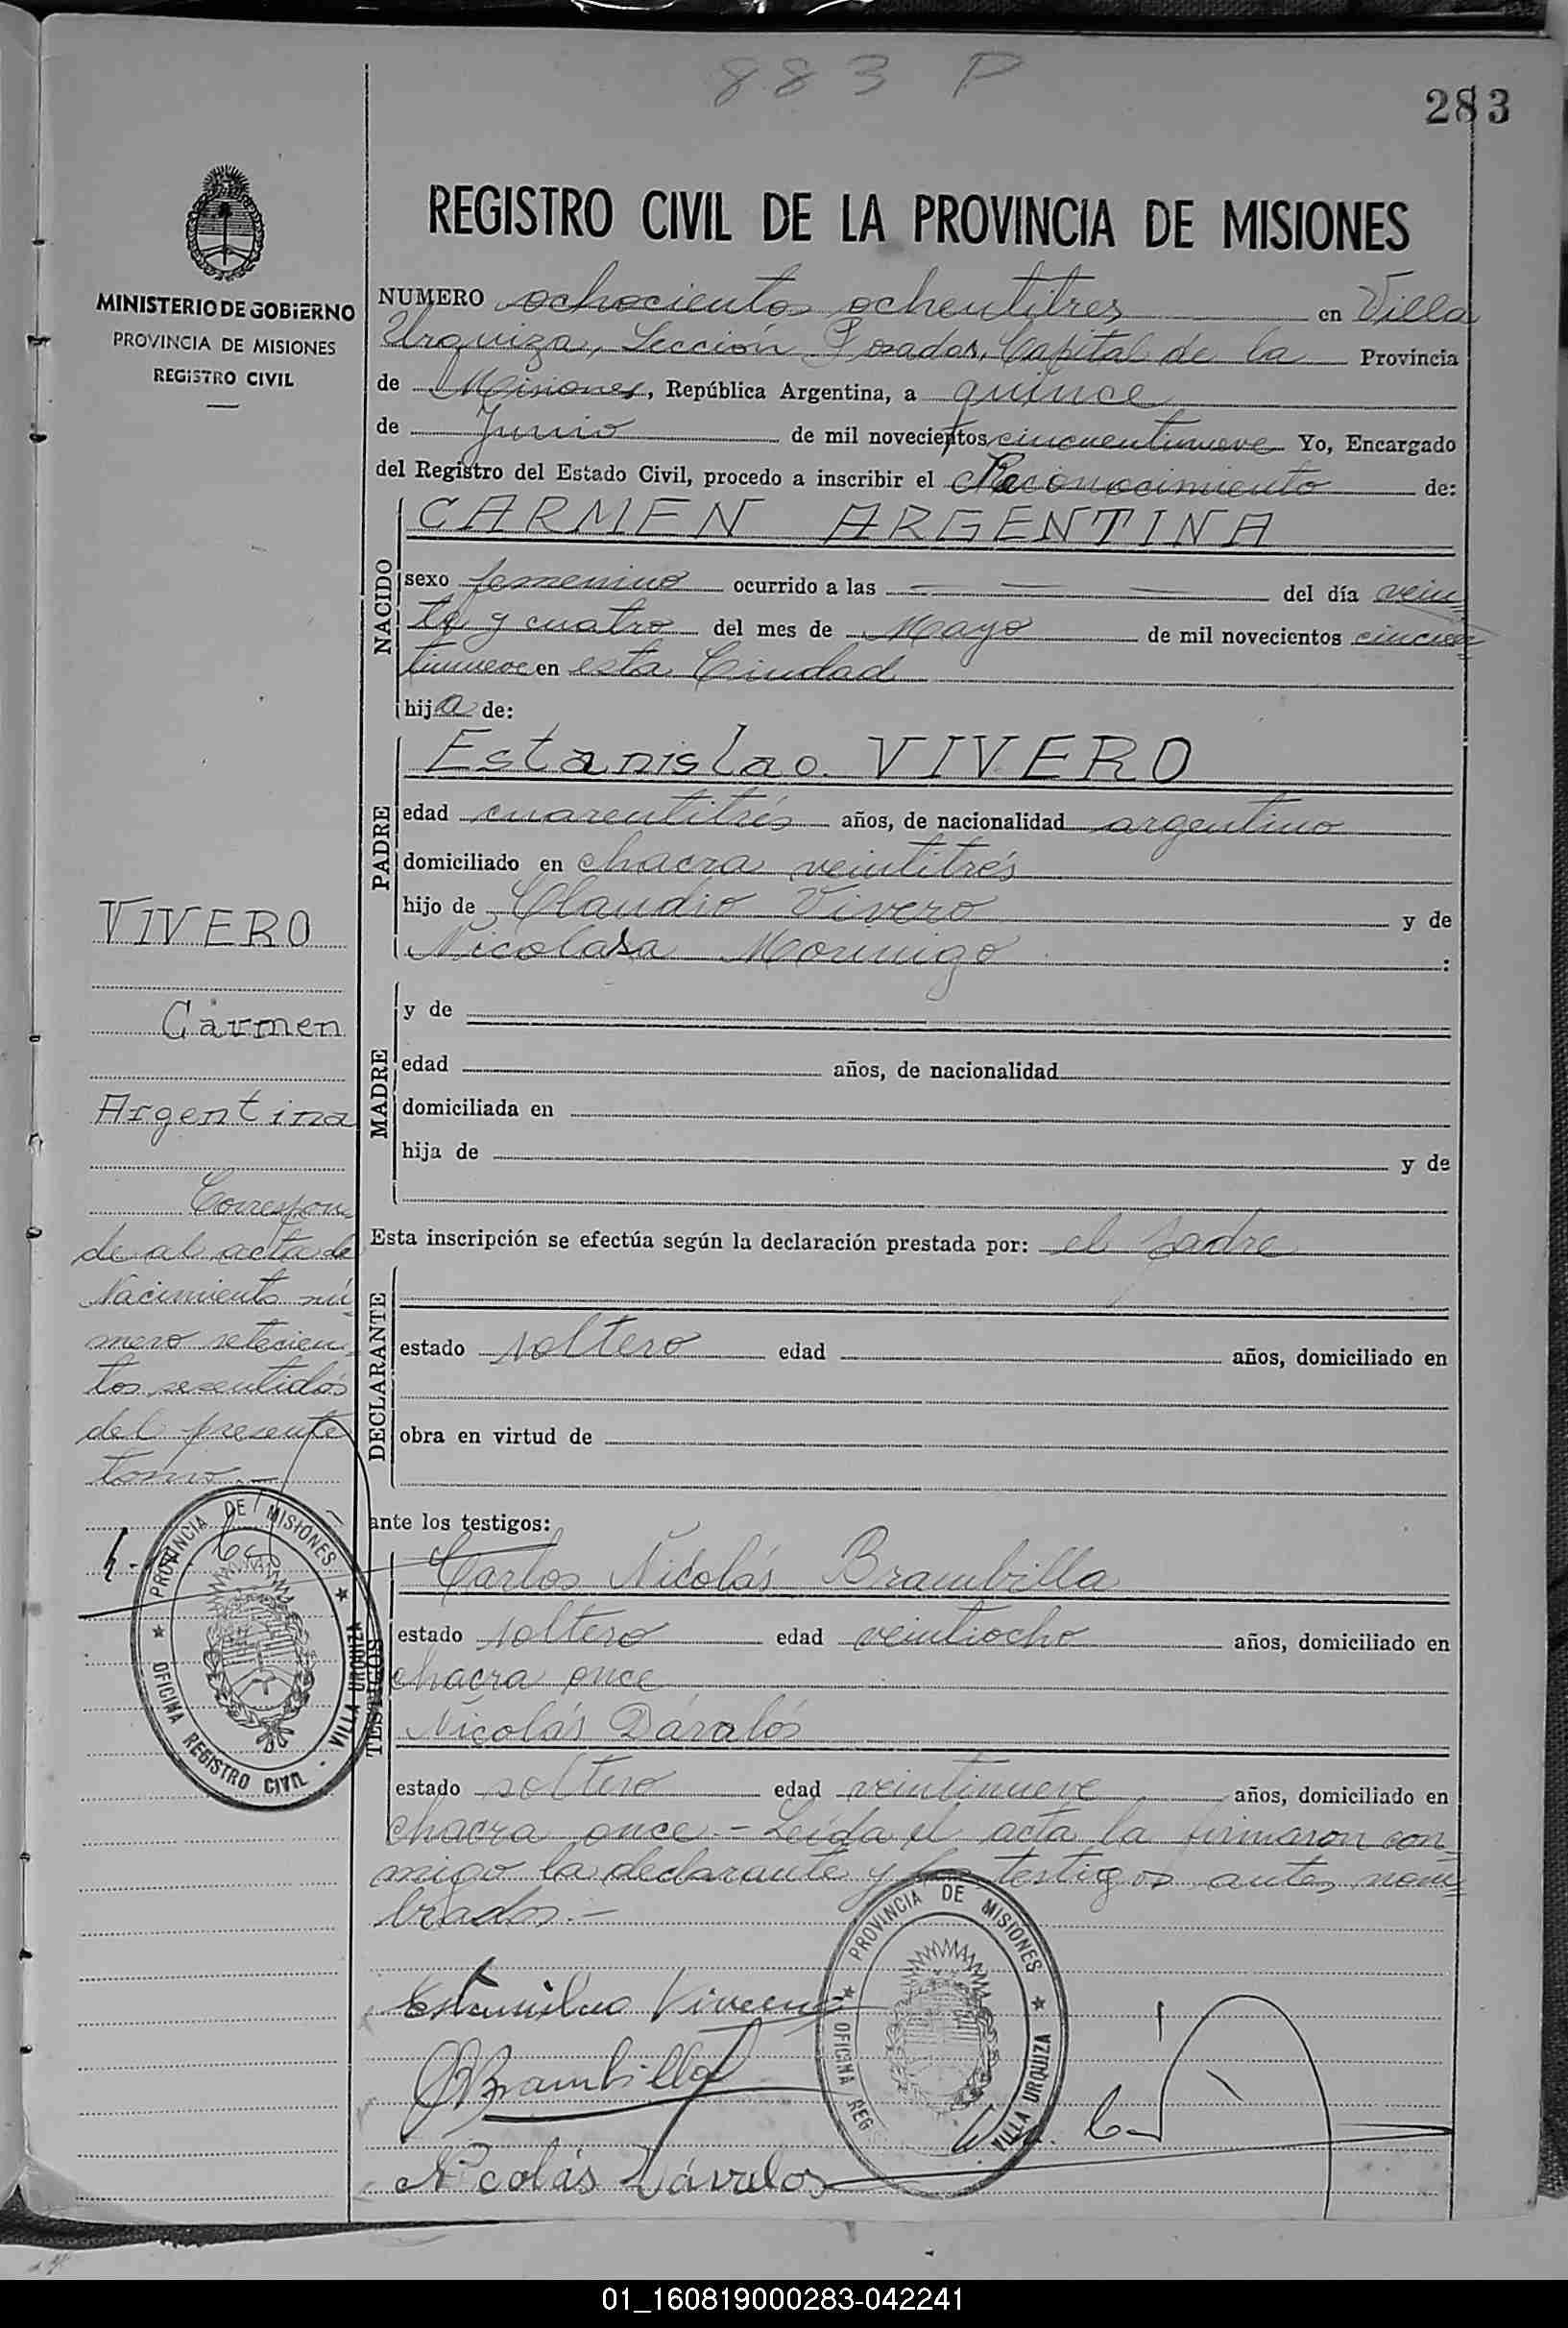 883 P
283
MINISTERIO DE GOBIERNO
PROVINCIA DE MISIONES
REGISTRO CIVIL
REGISTRO CIVIL DE LA PROVINCIA DE MISIONES
NUMERO ochocientos ochentitres en Villa
Urquiza, Sección Posadas, Capital de la Provincia
de Misiones, República Argentina, a quince
de Junio de mil novecientos cincuentinueve Yo, Encargado
del Registro del Estado Civil, procedo a inscribir el Reconocimiento de:
NACIDO
CARMEN ARGENTINA
sexo femenino ocurrido a las — — — del día vein-
te y cuatro del mes de Mayo de mil novecientos cincuen-
tinueve en esta Ciudad
hija de:
PADRE
Estanislao VIVERO
edad cuarentitrés años, de nacionalidad argentino
domiciliado en chacra veintitrés
hijo de Claudio Vivero y de
Nicolasa Monnigo :
MADRE
y de
edad años, de nacionalidad
domiciliada en
hija de y de
Esta inscripción se efectúa según la declaración prestada por: el padre
DECLARANTE
estado soltero edad años, domiciliado en
obra en virtud de
ante los testigos:
TESTIGOS
Carlos Nicolás Brambilla
estado soltero edad veintiocho años, domiciliado en
chacra once
Nicolás Dávalos
estado soltero edad veintinueve años, domiciliado en
chacra once.- Leída el acta la firmaron con-
migo la declarante y los testigos antes nom-
brados.-
Estanislao Vivero
CBrambilla
Nicolás Dávalos
PROVINCIA DE MISIONES
OFICINA REG
VILLA URQUIZA
VIVERO
Carmen
Argentina
Correspon-
de al acta de
Nacimiento nú-
mero setecien-
tos sesentidós
del presente
tomo.-
PROVINCIA DE MISIONES
OFICINA REGISTRO CIVIL - VILLA URQUIZA
01_160819000283-042241